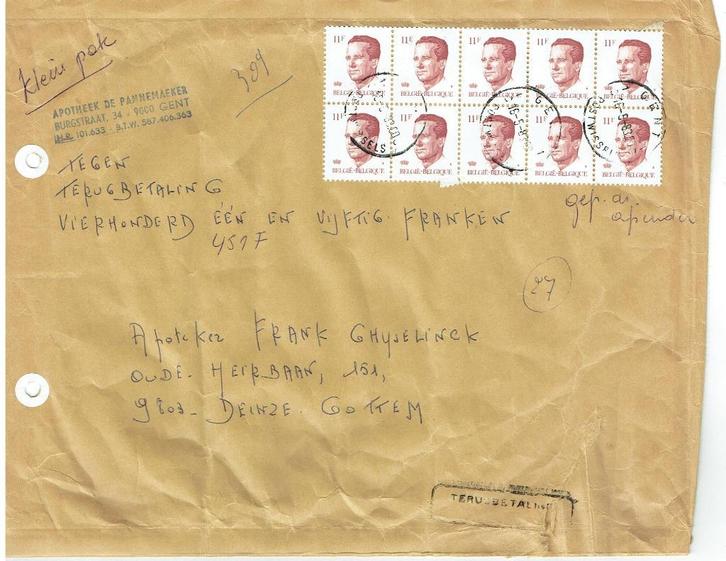 klein pak
389
APOTHEEK DE PANNEMAEKER
BURGSTRAAT, 34 - 9000 GENT
H.R. 101.633 - B.T.W. 567.406.363
11F 11F 11F 11F 11F
BELGIË-BELGIQUE BELGIË-BELGIQUE BELGIË-BELGIQUE BELGIË-BELGIQUE BELGIË-BELGIQUE
11F 11F 11F 11F 11F
BELGIË-BELGIQUE BELGIË-BELGIQUE BELGIË-BELGIQUE BELGIË-BELGIQUE BELGIË-BELGIQUE
GENT
TEGEN
TERUGBETALING
VIERHONDERD ÉÉN EN VIJFTIG FRANKEN
451F
27
Apoteker FRANK GHYSELINCK
OUDE HEIRBAAN, 151,
9803- DEINZE. GOTTEM
TERUGBETALING